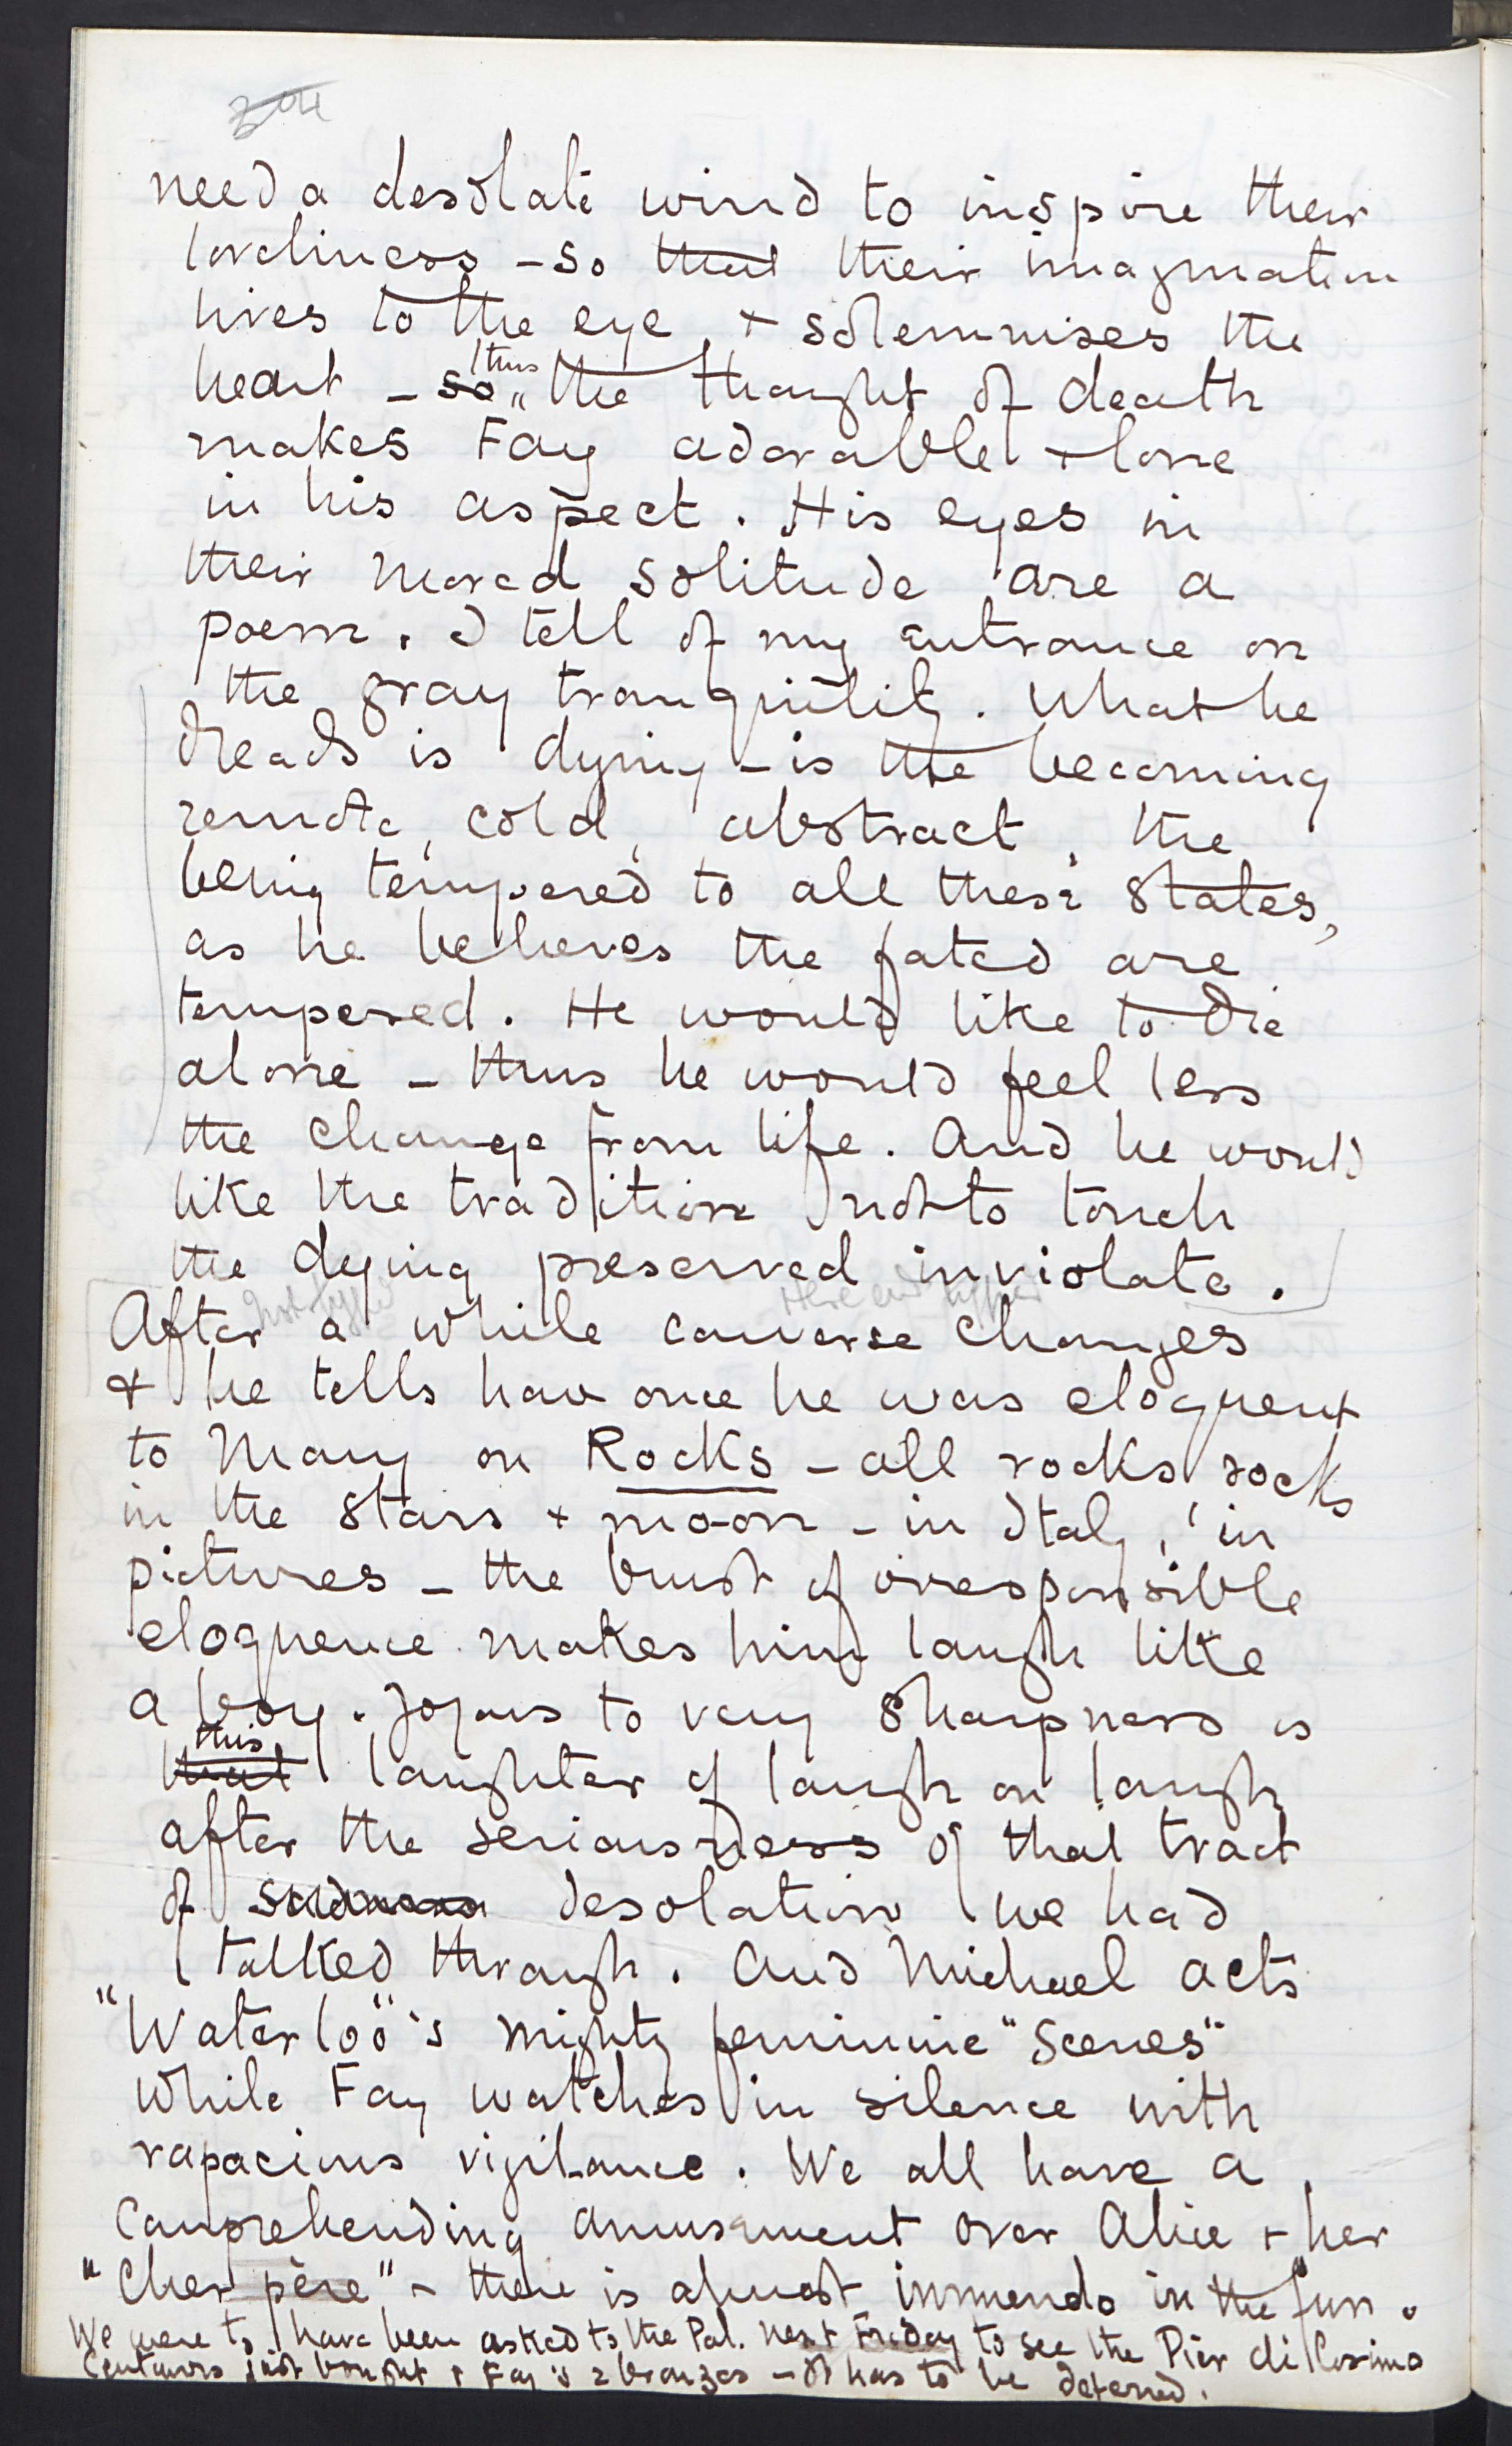 need a desolate wind to inspire their
loveliness – so that their imagination
lives to the eye, + solemnises the
heart – so thus the thought of death
makes Fay adorable + lone
in his aspect. His eyes in
their moved solitude are a
poem. I tell of my entrance on
the gray tranquility. What he
dreads is dying – is the becoming
remote, cold, abstract, the
being tempered to all these states,
as he believes the fated are
tempered. He would like to die
alone – thus he would feel less
the change from life. And he would
like the tradition not to touch
the dying preserved inviolate.
After a while converse changes
+ he tells how once he was eloquent
to many on Rocks – all rocks rocks
in the stars + moon – in Italy, in
pictures – the burst of irresponsible
eloquence makes him laugh like
a boy. Joyous to very sharpness is
that this laughter of laugh on laugh
after the seriousness of that tract
of sadness desolation we had
talked through. And Michael acts
"Waterloo"'s mighty feminine "Scenes"
while Fay watches in silence with
rapacious vigilance. We all have a
comprehending amusement over Alice + her
"Cher père" – there is almost innuendo in the fun.
We were to have been asked to the Pal. next Friday to see the Pier di Cosimo
Centaurs just bought + Fay's 2 bronzes – It has to be deferred.